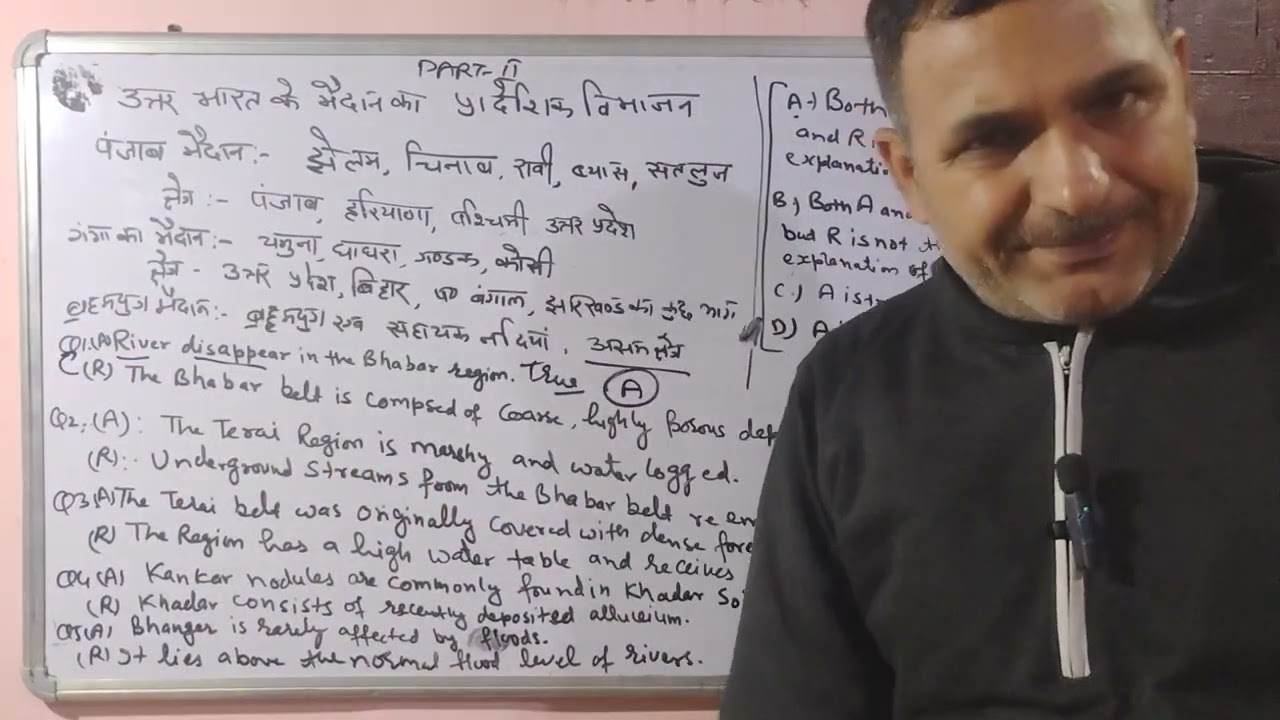 PART-II
उत्तर भारत के मैदान का प्रादेशिक विभाजन
पंजाब मैदान:- झेलम, चिनाब, रावी, ब्यास, सतलुज
क्षेत्र:- पंजाब, हरियाणा, पश्चिमी उत्तर प्रदेश
गंगा का मैदान:- यमुना, घाघरा, गण्डक, कोसी
क्षेत्र - उत्तर प्रदेश, बिहार, प० बंगाल, झारखण्ड का कुछ भाग
मैदान:- सहायक नदियां, असम क्षेत्र
Q1.(A) River disappear in the Bhabar region. True (A)
(R) The Bhabar belt is compsed of Coarse, highly Porous dep
Q2:(A): The Terai Region is marshy and water logged.
(R):- Underground Streams from the Bhabar belt re em
Q3(A) The Terai belt was originally Covered with dense fore
(R) The Region has a high water table and receives
Q4(A) Kankar nodules are commonly found in Khadar So
(R) Khadar consists of recently deposited alluvium.
Q5(A) Bhangar is rarely affected by floods.
(R) It lies above the normal flood level of rivers.
A:) Both
and R
explanati
B:) Both A and
but R is not
explanation of
C:) A is
D) A